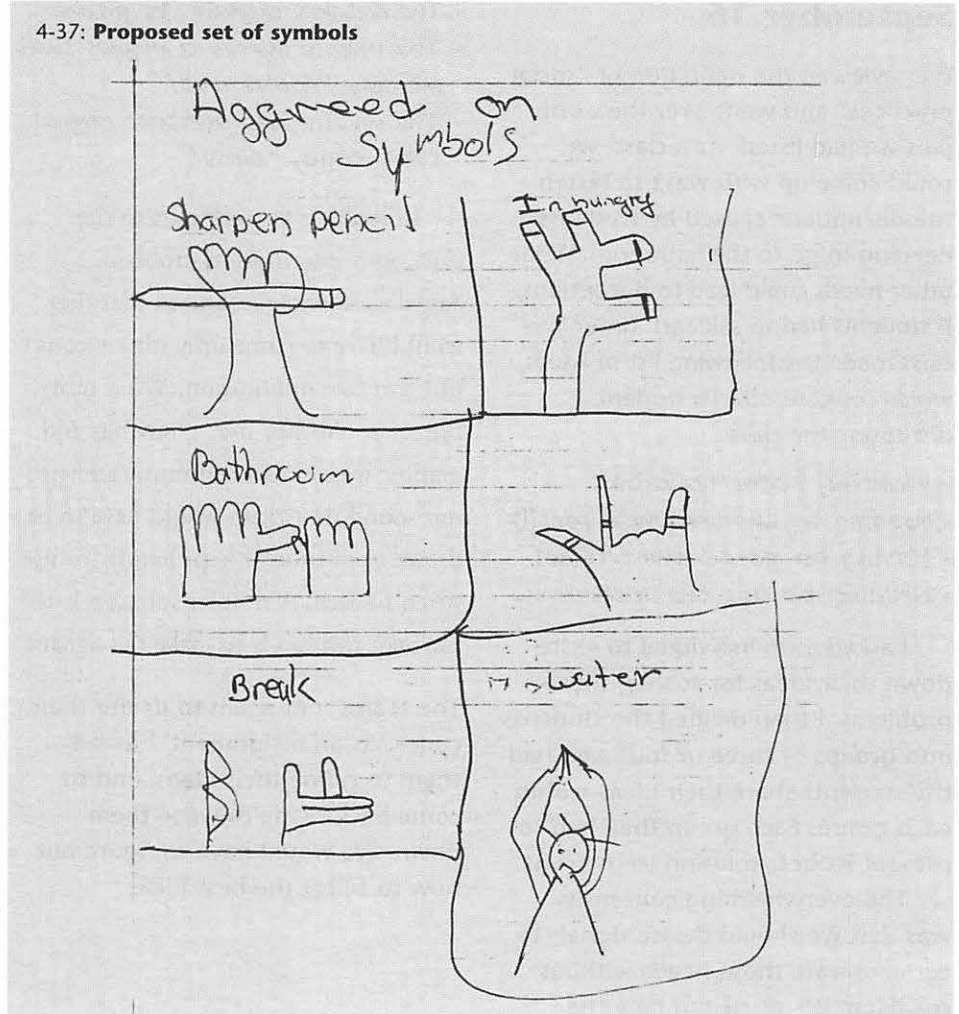 4-37: Proposed set of symbols
Aggreed on
Symbols
Sharpen pencil
Im hungry
Bathroom
Break
water